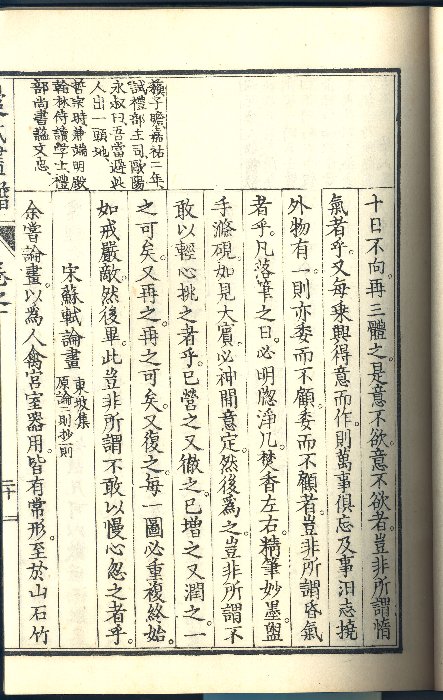 十日不向再三體之是意不欲意不欲者豈非所謂惰
氣者乎又每乘興得意而作則萬事俱忘及事汨志撓
外物有一則亦委而不顧委而不顧者豈非所謂昏氣
者乎凡落筆之日必明窓淨几焚香左右精筆妙墨盥
手滌硯如見大賓必神閒意定然後為之豈非所謂不
敢以輕心挑之者乎已營之又徹之已增之又潤之一
之可矣又再之再之可矣又復之每一圖必重複終始
如戒嚴敵然後畢此豈非所謂不敢以慢心忽之者乎
宋蘇軾論畫 東坡集
原論二則抄一則
余嘗論畫以為人禽宮室器用皆有常形至於山石竹
蘇子瞻嘉祐二年
試禮部主司歐陽
永叔曰吾當避此
人出一頭地
哲宗時兼端明殿
翰林侍讀學士禮
部尚書謚文忠